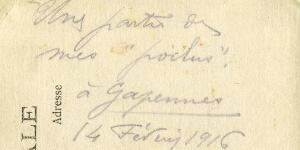 Une partie de
mes "poilus".
à Gapennes
14 Février 1916
Adresse
ALE